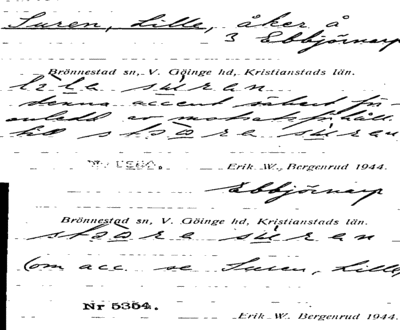 Suren, Lille, åker å
3 Ebbjörnarp
Brönnestad sn, V. Göinge hd, Kristianstads län.
lila suran
denna accent säkert
av
till støøra suran
Erik W. Bergenrud 1944.
Ebbjörnarp
Brönnestad sn, V. Göinge hd, Kristianstads län.
støøra suran
(om acc. se Suren, Lille,
Nr 5354.
Erik W. Bergenrud 1944.